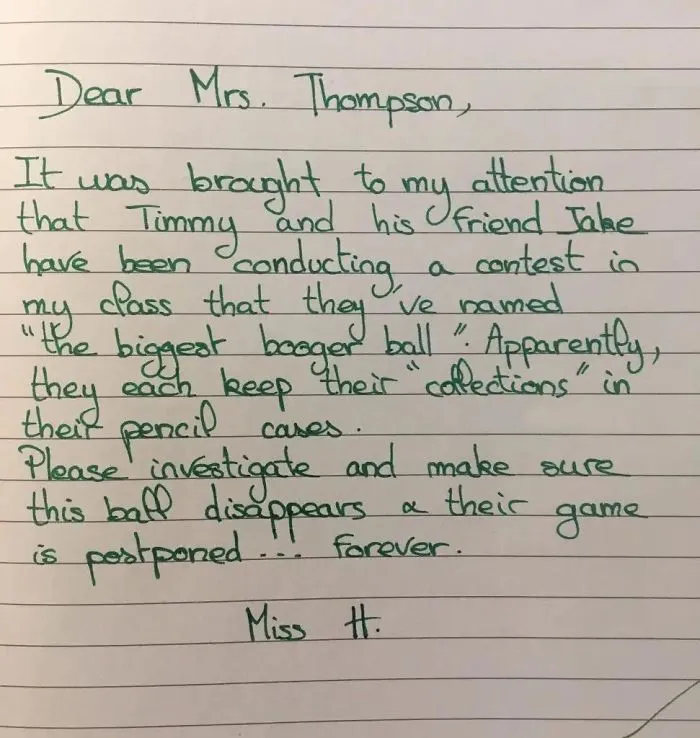 Dear Mrs. Thompson,
It was brought to my attention
that Timmy and his friend Jake
have been conducting a contest in
my class that they've named
"the biggest booger ball". Apparently,
they each keep their "collections" in
their pencil cases.
Please investigate and make sure
this ball disappears & their game
is postponed... forever.
Miss H.